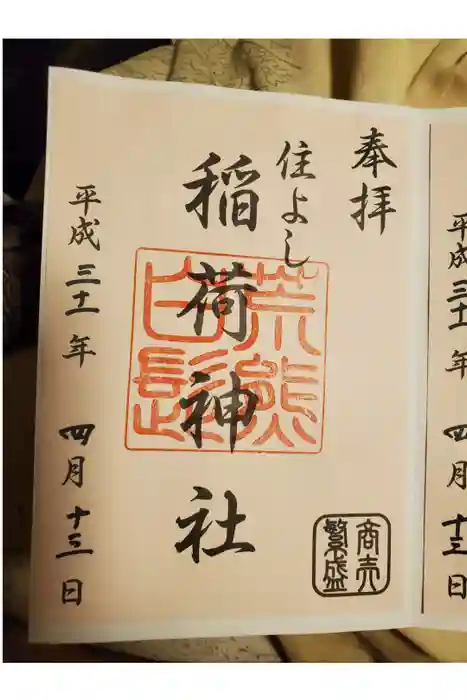 奉拝
住よし
稲荷神社
荒熊
白髭
商売
繁盛
平成三十一年 四月十三日
平成三十一年 四月十三日